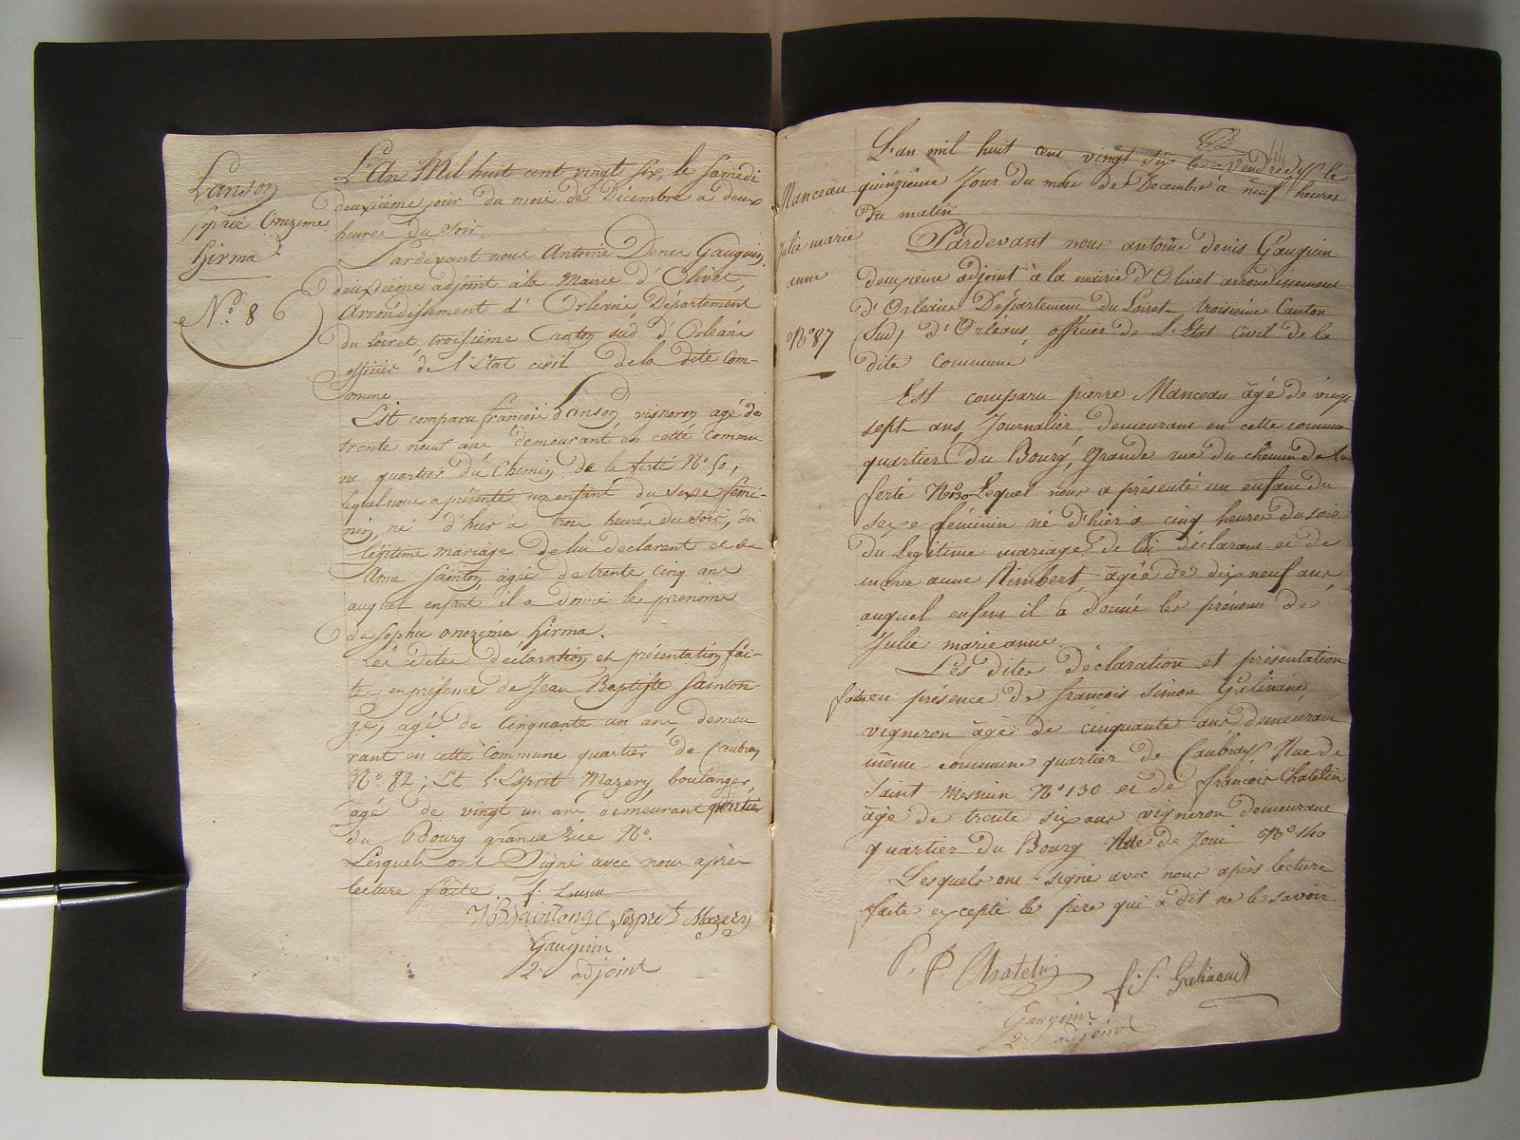 Lanson
Sophie Onezime
Hirma
N.° 86
L'An Mil huit cent vingt six, le samedi
deuxième jour du mois de Décembre à deux
heures du soir.
Pardevant nous Antoine Denis Gauguin
deuxième adjoint à la Mairie d'Olivet,
Arrondissement d'Orléans Département
du Loiret, troisième Canton sud d'Orléans
officier de l'état civil de la dite Com-
mune
Est comparu françois Lanson vigneron agé de
trente neuf ans demeurant en cette Commu
ne quartier du Chemin de la ferté N° 50,
lequel nous a présenté un enfant du sexe fémi-
nin, né d'hier à trois heures du soir, du
légitime mariage de lui déclarant et de
Anne Sainton agée de trente cinq ans
auquel enfant il a donné les prénoms
de Sophie onezime hirma.
Les dites déclaration et présentation fai-
tes en présence de Jean Baptiste Sainton
agé de Cinquante un ans, demeu
rant en cette commune quartier de Caubray
N° 82; Et l'Esprit Mazery boulanger
agé de vingt un ans demeurant quartier
du Bourg grande Rue N°.
Lesquels ont Signé avec nous après
lecture faite f. Lanson
J B Sainton Lesprit Mazery
Gauguin
2e adjoint
Manceau
Julie marie
anne
N° 87
L'an mil huit cent vingt six le vendredi le
quinzième Jour du mois de Décembre à neuf heures
du matin
Pardevant nous antoine denis Gauguin
deuxieme adjoint à la mairie d'Olivet arrondissement
d'Orléans Département du Loiret troisième Canton
Sud, d'Orléans, officier de L'Etat Civil de la
dite commune
Est comparu pierre Manceau âgé de vingt
sept ans, Journalier demeurant en cette commune
quartier du Bourg, Grande rue du chemin de la
ferté Lequel nous a présenté un enfant du
sexe féminin né d'hier à cinq heures du soir
du Légitime mariage de lui déclarant et de
marie anne Rimbert âgée de dix neuf ans
auquel enfant il a donné les prénoms de
Julie marie anne
Les dites déclaration et présentation
faites en présence de françois Simon Galinand,
vigneron âgé de cinquante ans demeurant
même commune quartier de Caubray Rue de
Saint Mesmin N° 130 et de françois Chatelin
âgé de trente six ans vigneron demeurant
quartier du Bourg Rue de Joui N° 140
Lesquels ont signé avec nous après lecture
faite excepté le père qui a dit ne le savoir
Chatelin f. S. Galinand
Gauguin
2e adjoint